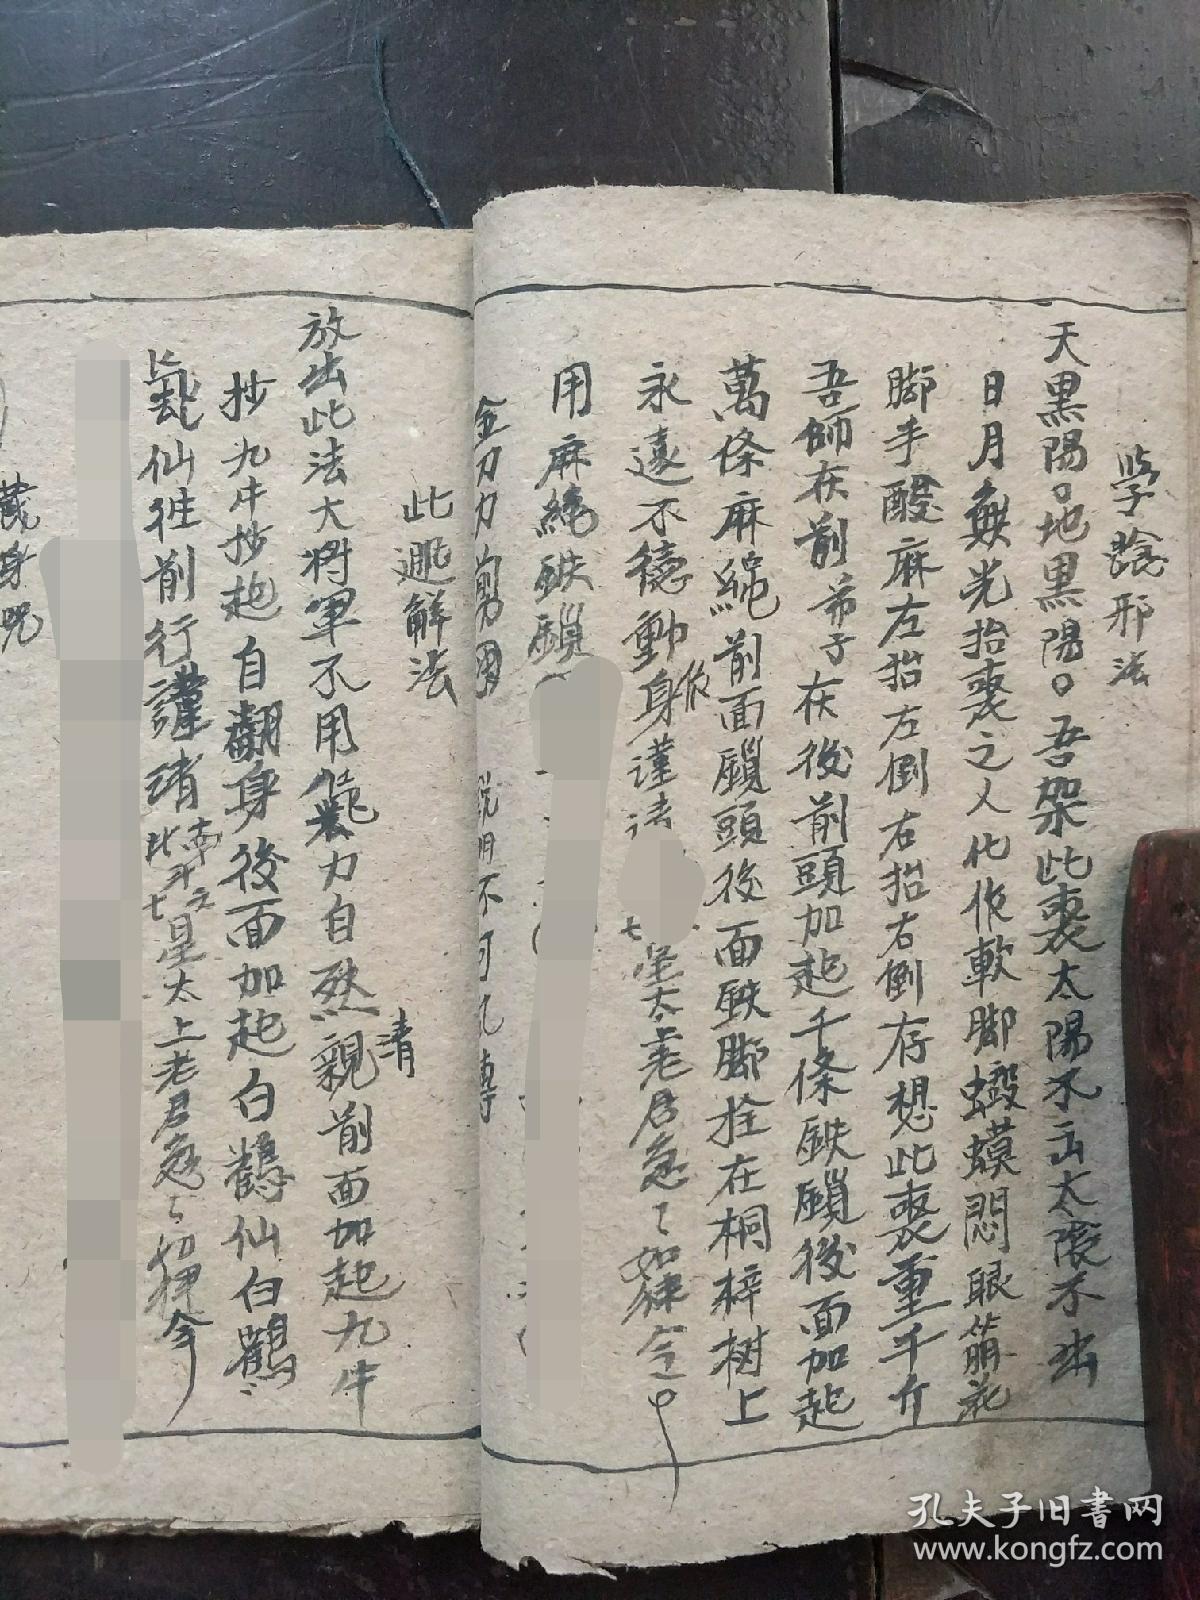 學陰邪法
天黑陽。地黑陽。吾架此喪太陽不出太陰不出
日月無光抬喪之人化作軟脚蝦蟆悶眼箭花
脚手酸麻左抬左倒右抬右倒存想此喪重千斤
吾師在前弟子在後前頭加起千條鉄鎖後面加起
萬條麻繩前面鎖頭後面鉄脚拴在桐梓樹上
永遠不德動身謹
七星太上老君急々如律令
用麻繩鉄鎖
金刀力剪用 說明不可乱傳
此邪解法
放出此法大將軍不用 力自然親前面加起九牛
清
抄九牛抄起自翻身後面加起白鶴仙白鶴
仙往前行謹請南斗北斗七星太上老君急々如律令
藏身咒
孔夫子旧书网
www.kongfz.com